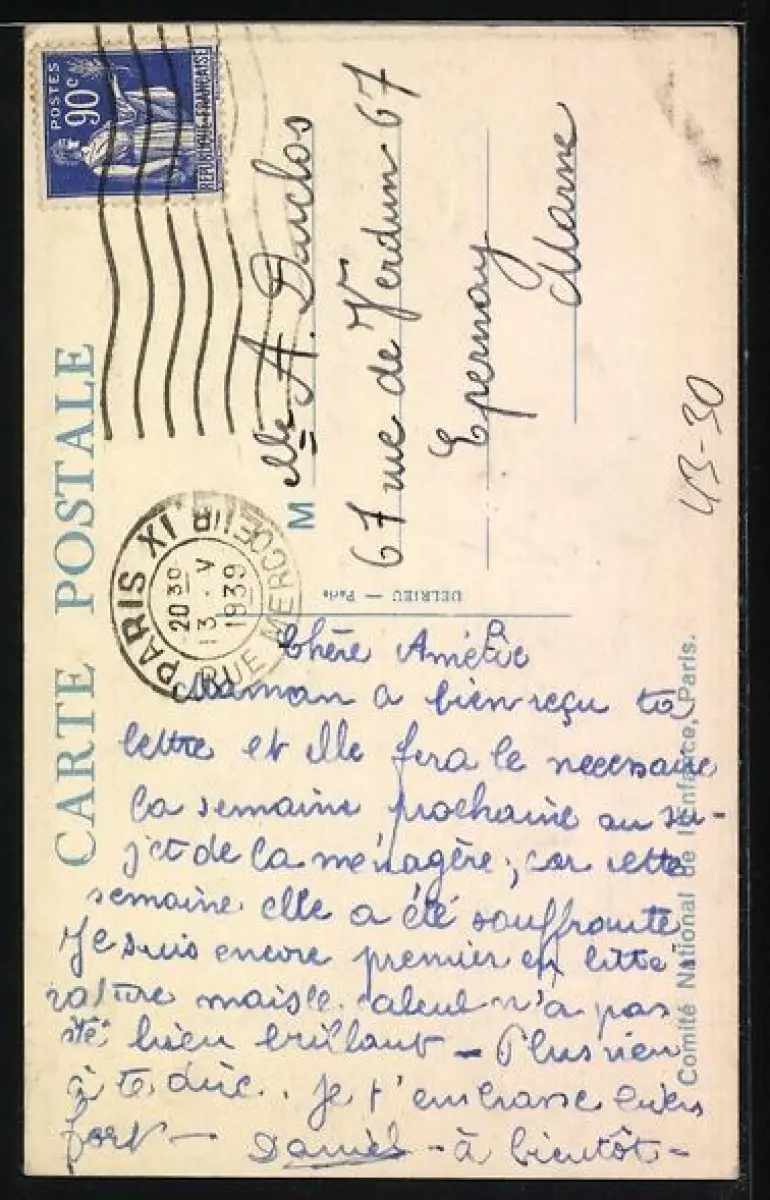 POSTES
90c
REPUBLIQUE-FRANÇAISE
CARTE POSTALE
PARIS XI R. RUE MERCOEUR
20 30
13 . V
1939
M elle A. Duclos
67 rue de Verdun 67
Epernay
Marne
43-30
DELRIEU — Paris
Comité National de l'Enfance, Paris.
Chère Amélie
Maman a bien reçu ta
lettre et elle fera le necessaire
la semaine prochaine au su-
jet de la ménagère, car cette
semaine elle a été souffrante
Je suis encore premier en litté-
rature mais le calcul n'a pas
été bien brillant – Plus rien
à te dire. Je t'embrasse bien
fort – Daniel – à bientôt –